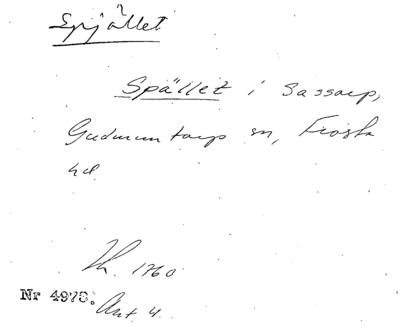 Spjället
Spället i Sassarp,
Gudmuntorp sn, Frosta
hd
Kh. 1760
Nr 4978. Akt 4